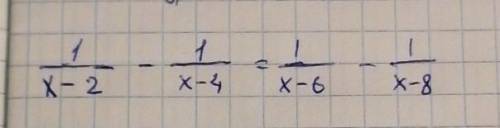 1/(x-2) - 1/(x-4) = 1/(x-6) - 1/(x-8)